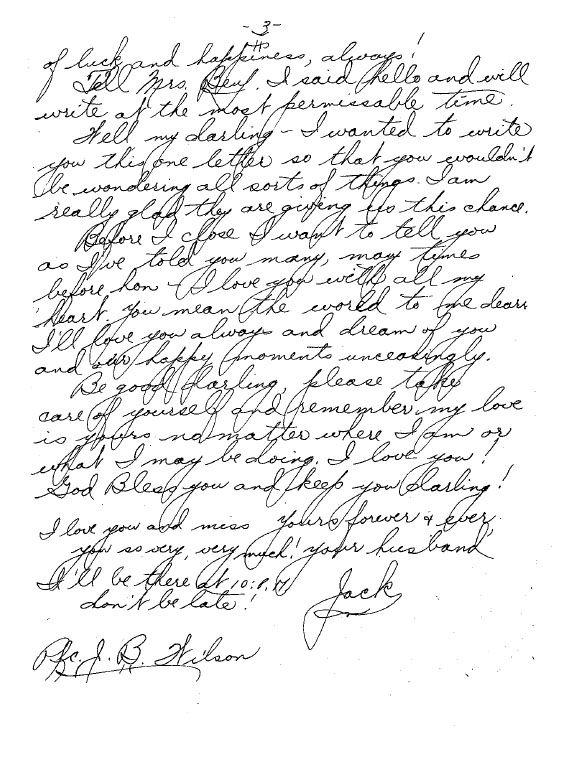 -3-
of luck and happiness, always!
Tell Mrs. I said hello and will
write at the most permissable time.
Well my darling - I wanted to write
you this one letter so that you wouldn't
be wondering all sorts of things. I am
really glad they are giving us this chance.
Before I close I want to tell you
as I've told you many, may tymes
before hon - I love you with all my
heart. You mean the world to me dear,
I'll love you always and dream of you
and our happy moments unceasingly.
Be good darling, please take
care of yourself and remember my love
is yours no matter where I am or
what I may be doing. I love you!
God Bless you and keep you darling!
I love you and miss
you so very, very much!
I'll be there at 10:P.M
don't be late!
Yours forever & ever,
your husband
Jack
Pfc. J. B. Wilson